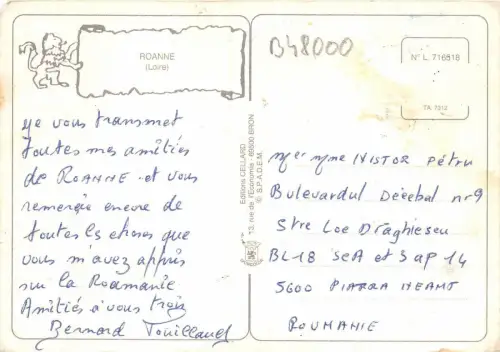 ROANNE
(Loire)
Je vous transmet
toutes mes amitiés
de ROANNE et vous
remercie encore de
toutes les choses que
vous m'avez appris
sur la Roumanie
Amitiés à vous trois
Bernard
Editions CELLARD
12, rue de l'Economie - 69500 BRON
© S.P.A.D.E.M.
B48000
N° L. 716818
7A. 7312
Mr et Mme NISTOR Pétru
Bulevardul Décébal nr 9
Stre Loc Draghiescu
BL 18 ScA et 3 ap 14
5600 PIATRA NEAMT
ROUMANIE